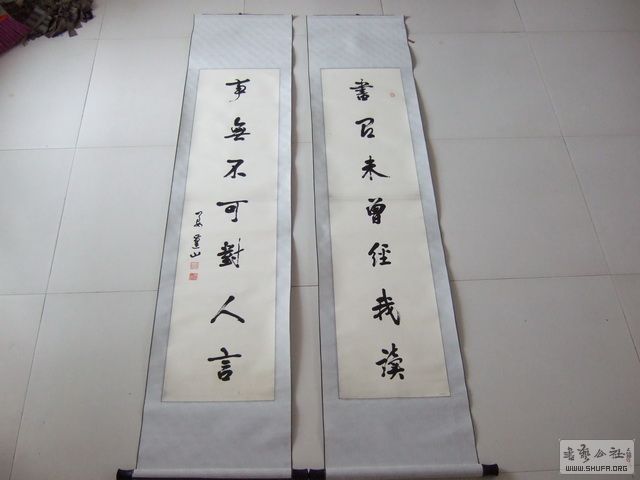 書有未曾經我讀
事無不可對人言
書藝公社
WWW.SHUFA.ORG